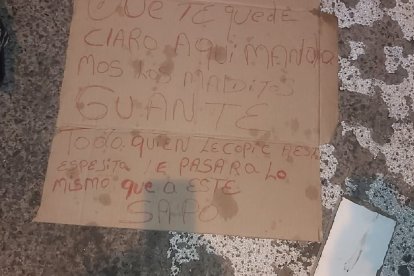 QUE TE quede
CLARO AQUI MANDA
MOS LOS MALDITOS
GUANTE
TODO QUIEN LE COPIE A ESTA
ESPESITA LE PASARA LO
MISMO que A ESTE
SAPO